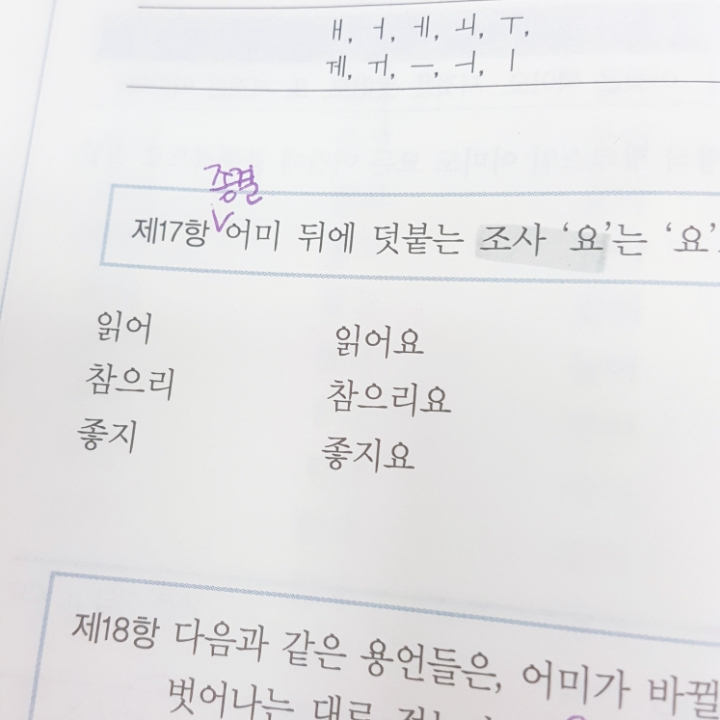 ㅐ, ㅓ, ㅔ, ㅚ, ㅜ,
ㅞ, ㅟ, ㅡ, ㅢ, ㅣ
종결
제17항 어미 뒤에 덧붙는 조사 ‘요’는 ‘요’
읽어 읽어요
참으리 참으리요
좋지 좋지요
제18항 다음과 같은 용언들은, 어미가 바뀔
벗어나는 대로